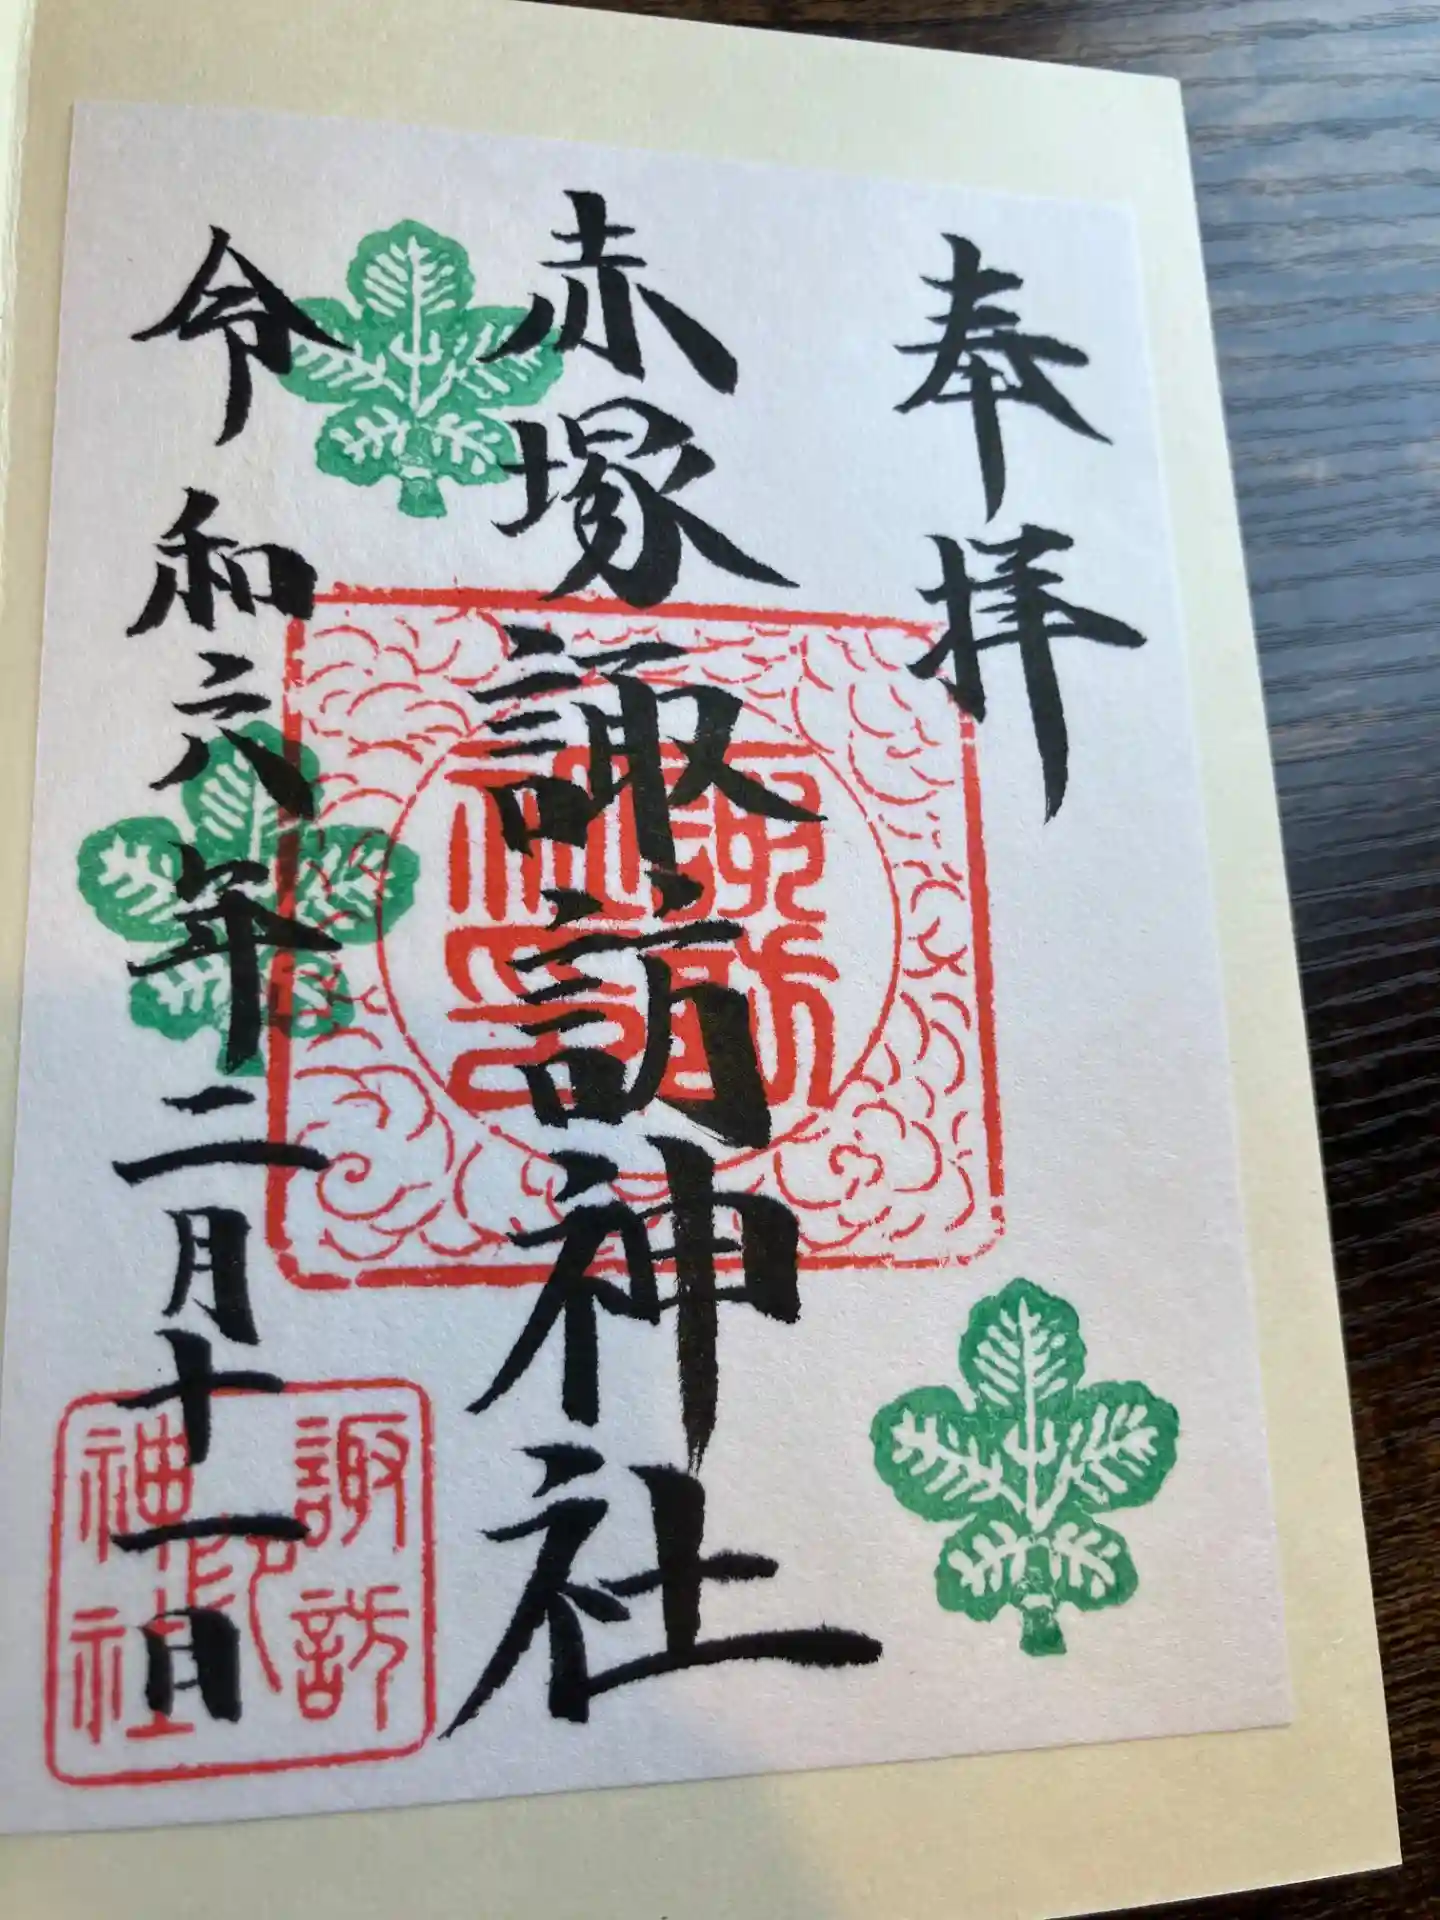 奉拝
赤塚諏訪神社
令和六年二月十一日
諏訪
神社